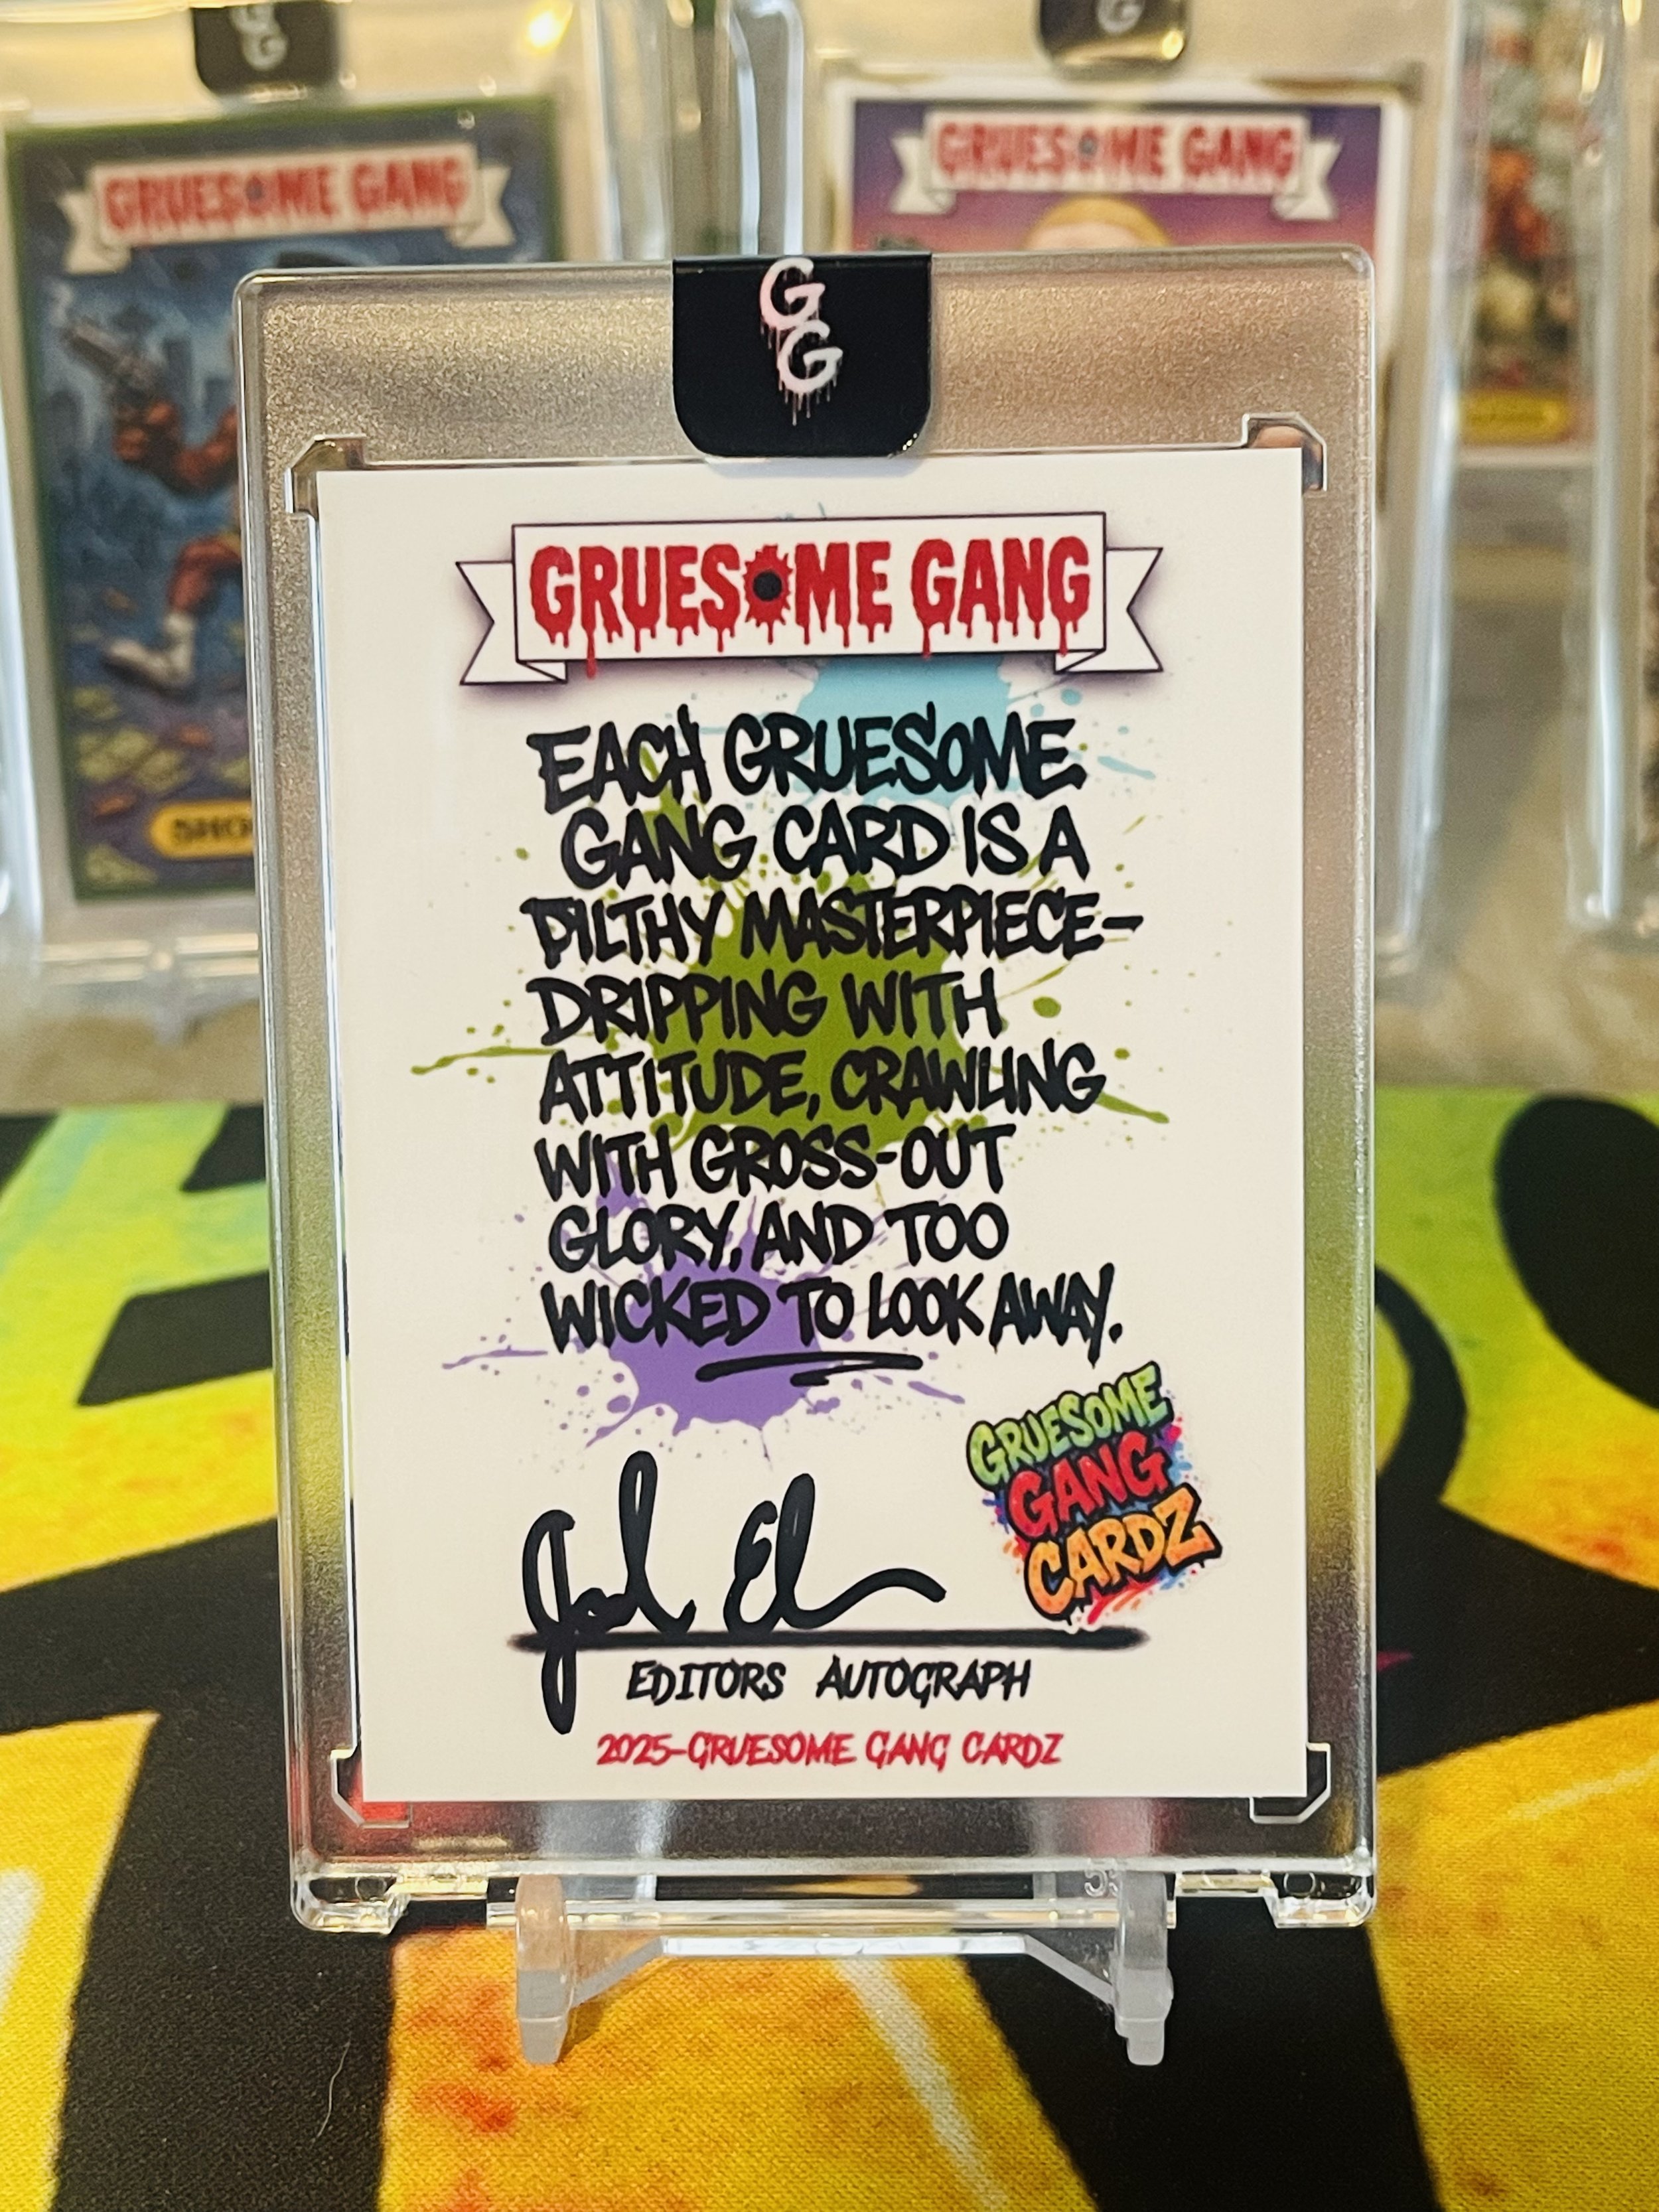 G
G
G
G
GRUESOME GANG
GRUESOME GANG
G
G
GRUESOME GANG
EACH GRUESOME
GANG CARD IS A
FILTHY MASTERPIECE-
DRIPPING WITH
ATTITUDE, CRAWLING
WITH GROSS-OUT
GLORY, AND TOO
WICKED TO LOOK AWAY.
GRUESOME
GANG
CARDZ
EDITORS AUTOGRAPH
2025-GRUESOME GANG CARDZ